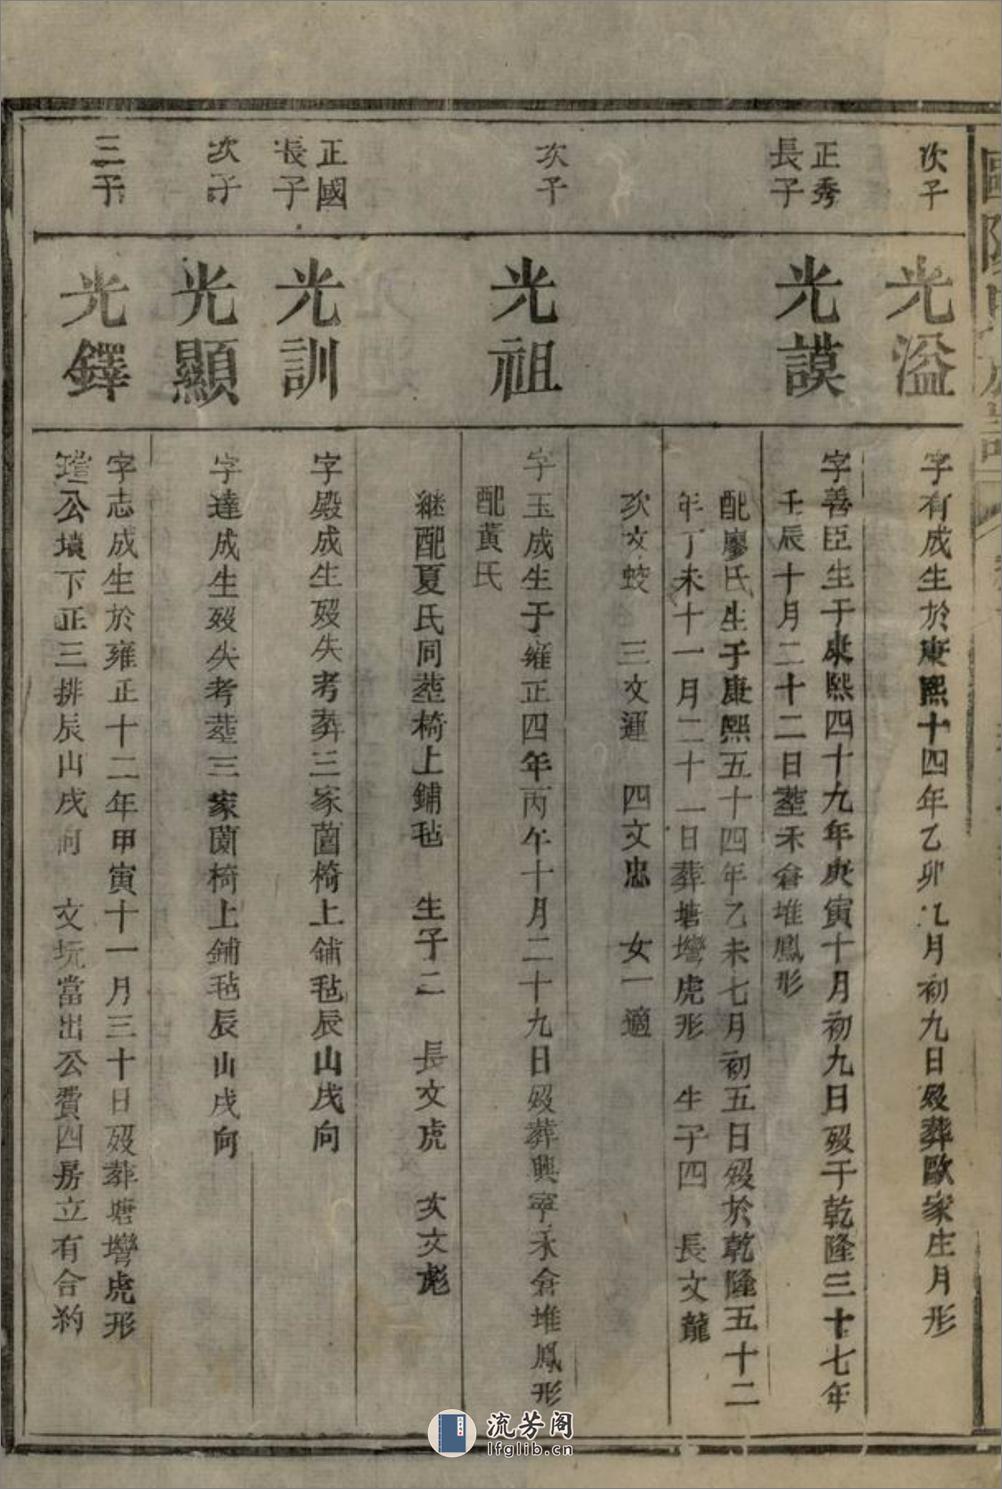 次子
光溢
字有成生於康熙十四年乙卯九月初九日歿葬歐家庄月形
正秀
長子
光謨
字善臣生于康熙四十九年庚寅十月初九日歿于乾隆三十七年
壬辰十月二十二日塟禾倉堆鳳形
配廖氏生于康熙五十四年乙未七月初五日歿於乾隆五十二
年丁未十一月二十一日葬塘壪虎形 生子四 長文龍
次文蛟 三文運 四文忠 女一適
次子
光祖
字玉成生于雍正四年丙午十月二十九日歿葬興寧禾倉堆鳳形
配黃氏
継配夏氏同塟椅上鋪毡 生子二 長文虎 次文彪
正國
長子
光訓
字殿成生歿失考葬三家菌椅上鋪毡辰山戌向
次子
光顯
字達成生歿失考塟三家菌椅上鋪毡辰山戌向
三子
光鐸
字志成生於雍正十二年甲寅十一月三十日歿葬塘壪虎形
瑄公墳下正三排辰山戌向 文坑當出公費四房立有合約
流芳阁
lfglib.cn